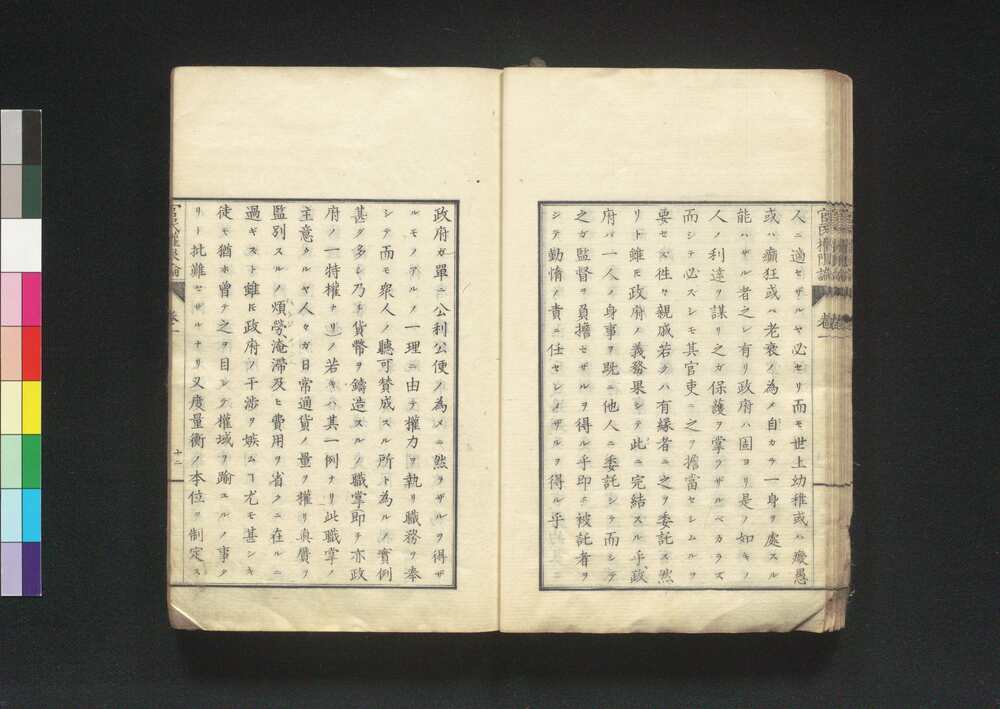 人ニ適セザルヤ必セリ而モ世上幼稚或ハ癡愚
或ハ癲狂或ハ老衰ノ為メ自カラ一身ヲ處スル
能ハザル者之レ有リ政府ハ固ヨリ是ノ如キノ
人ノ利達ヲ謀リ之ガ保護ヲ掌ラザルベカラズ
而シテ必スシモ其官吏ニ之ヲ擔當セシムルヲ
要セズ徃々親戚若クハ有縁者ニ之ヲ委託ス然
リト雖モ政府ノ義務果シテ此ニ完結スル乎政
府ハ一人ノ身事ヲ既ニ他人ニ委託シテ而シテ
之ガ監督ヲ負擔セザルヲ得ル乎即ニ被託者ヲ
シテ勤惰ノ責ニ任セシメザルヲ得ル乎
政府ガ單ニ公利公便ノ為メニ然ラザルヲ得ザ
ルモノアルノ一理ニ由テ權力ヲ執リ職務ヲ奉
シテ而モ衆人ノ聽可贊成スル所ト為ルノ實例
甚ダ多シ乃チ貨幣ヲ鑄造スルノ職掌即チ亦政
府ノ一特權ナリノ若キハ其一例ナリ此職掌ノ
主意タルヤ人々ガ日常通貨ノ量ヲ權リ眞贋ヲ
監別スルノ煩勞淹滯及ヒ費用ヲ省クニ在ルニ
過ギスト雖モ政府ノ干渉ヲ嫉ムヿ尤モ甚シキ
徒モ猶ホ曾テ之ヲ目シテ權域ヲ踰ユルノ事タ
リト批難セザルナリ又度量衡ノ本位ヲ制定ス
十二